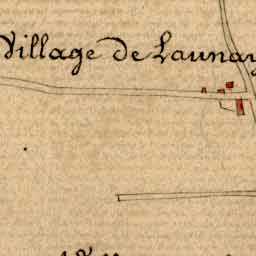 Village de Launay